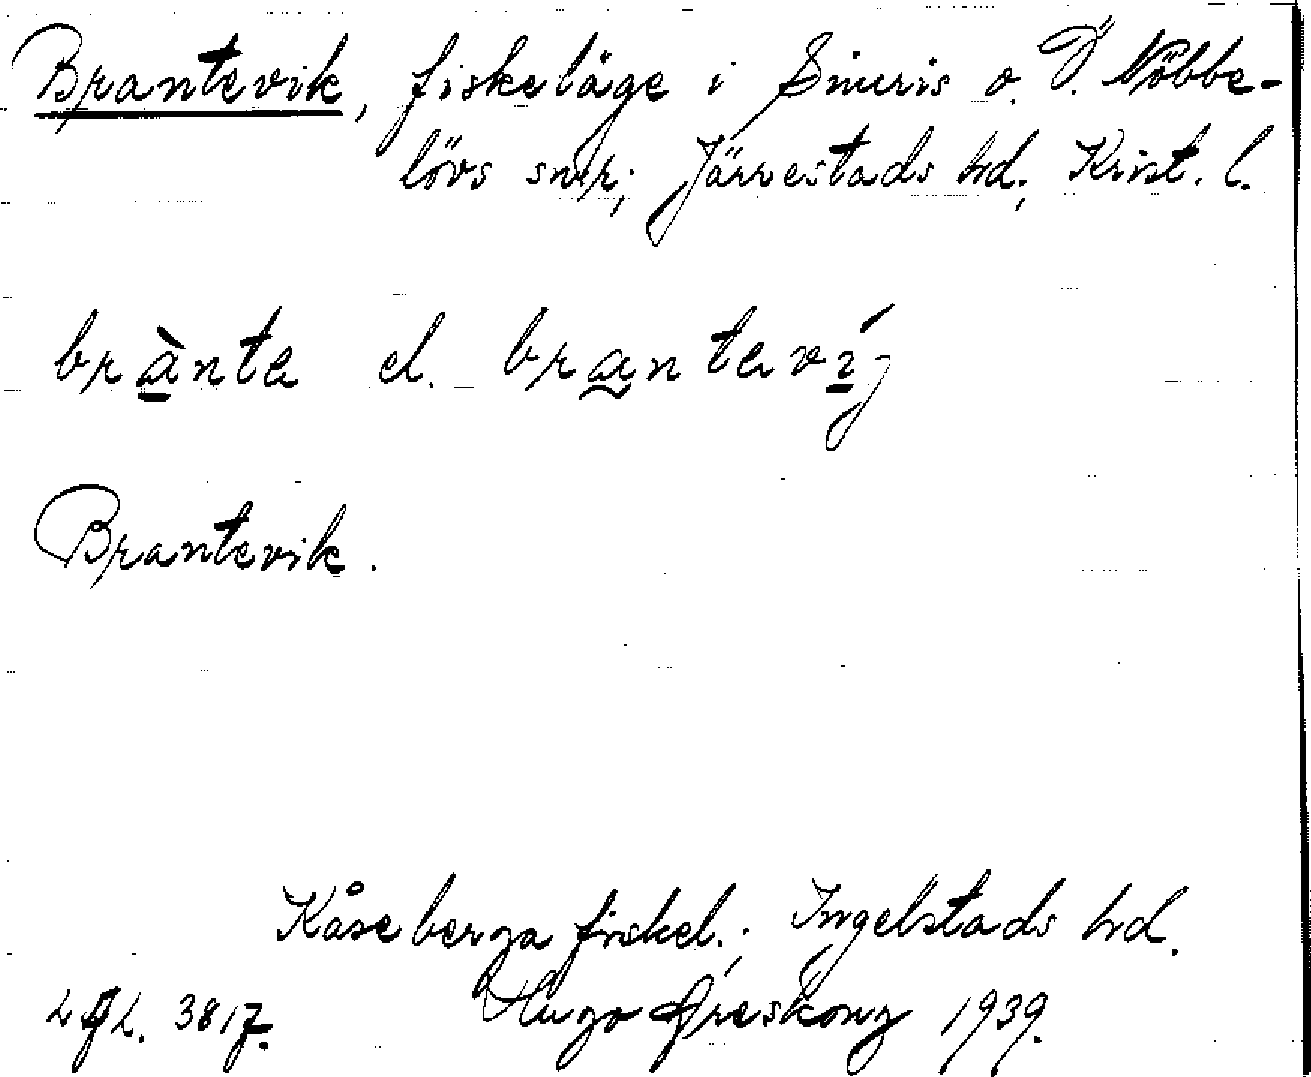 Brantevik, fiskeläge i Simris o. Ö. Nöbbe-
lövs snr; Järrestads hd; Krist. l.
brànta el. brantaví
Brantevik.
Kåseberga fiskel.; Ingelstads hd.
3817. Hugo Areskoug 1939.